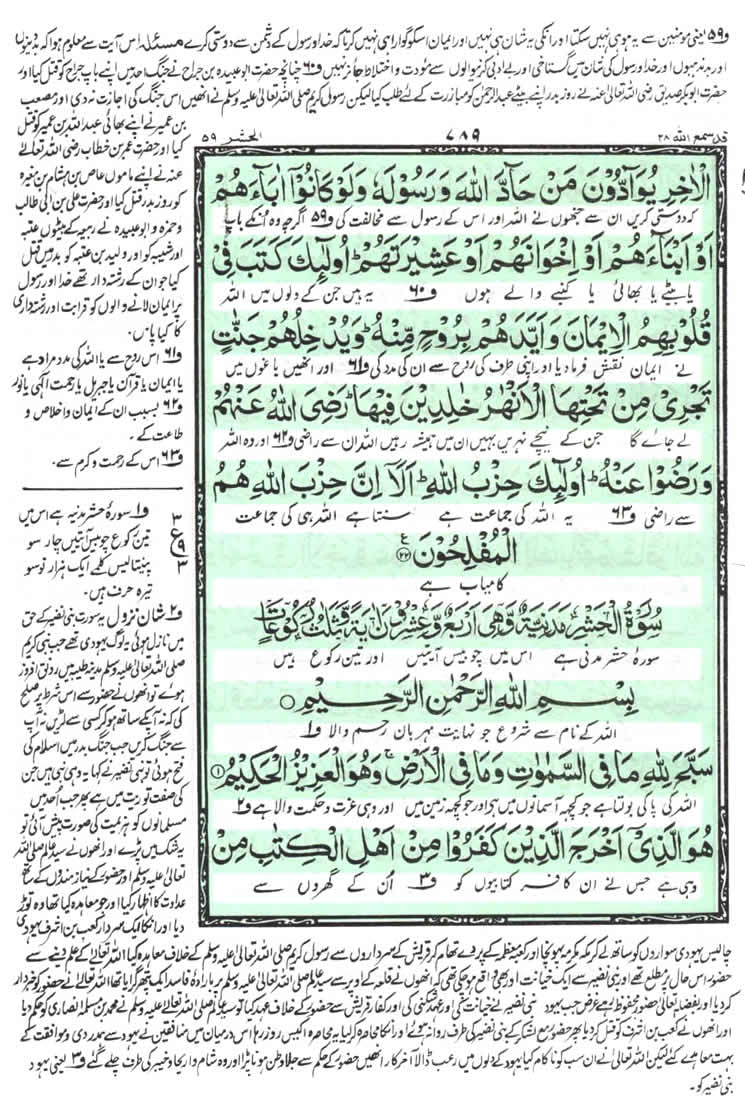 و۵۹ یعنی مومنین سے یہ ہو ہی نہیں سکتا اور انکی یہ شان ہی نہیں اور ایمان اسکو گوارا ہی نہیں کرتا کہ خدا و رسول کے دشمن سے دوستی کرے مسئلہ اس آیت سے معلوم ہوا کہ بدینوں
اور بد مذہبوں اور خدا و رسول کی شان میں گستاخی اور بے ادبی کرنیوالوں سے مودت و اختلاط جائز نہیں و۶۰ چنانچہ حضرت ابو عبیدہ بن جراح نے جنگ احد میں اپنے باپ جراح کو قتل کیا اور
حضرت ابوبکر صدیق رضی اللہ تعالیٰ عنہ نے روز بدر اپنے بیٹے عبدالرحمن کو مبارزت کے لئے طلب کیا لیکن رسول کریم صلی اللہ تعالیٰ علیہ وسلم نے انھیں اس جنگ کی اجازت نہ دی اور مصعب
بن عمیر نے اپنے بھائی عبداللہ بن عمیر کو قتل
کیا اور حضرت عمر بن خطاب رضی اللہ تعالےٰ
عنہ نے اپنے ماموں عاص بن ہشام بن مغیرہ
کو روز بدر قتل کیا اور حضرت علی بن ابی طالب
و حمزہ و ابو عبیدہ نے ربیعہ کے بیٹوں عتبہ
اور شیبہ کو اور ولید بن عتبہ کو بدر میں قتل
کیا جو ان کے رشتہ دار تھے خدا اور رسول
پر ایمان لانے والوں کو قرابت اور رشتہ داری
کا کیا پاس۔
و۶۱ اس روح سے یا اللہ کی مدد مراد ہے
یا ایمان یا قرآن یا جبریل یا رحمت الٰہی یا نور
و۶۲ بسبب ان کے ایمان و اخلاص و
طاعت کے۔
و۶۳ اس کے رحمت و کرم سے۔
قد سمع اللہ ۲۸
۷۸۹
الحشر ۵۹
الْاٰخِرِ يُوَآدُّوْنَ مَنْ حَآدَّ اللّٰهَ وَرَسُوْلَهٗ وَلَوْ كَانُوْٓا اٰبَآءَهُمْ
کہ دوستی کریں ان سے جنھوں نے اللہ اور اس کے رسول سے مخالفت کی و۵۹ اگرچہ وہ انکے باپ
اَوْ اَبْنَآءَهُمْ اَوْ اِخْوَانَهُمْ اَوْ عَشِيْرَتَهُمْ ؕ اُولٰٓئِكَ كَتَبَ فِيْ
یا بیٹے یا بھائی یا کنبے والے ہوں و۶۰ یہ ہیں جن کے دلوں میں اللہ
قُلُوْبِهِمُ الْاِيْمَانَ وَاَيَّدَهُمْ بِرُوْحٍ مِّنْهُ ؕ وَيُدْخِلُهُمْ جَنّٰتٍ
نے ایمان نقش فرمادیا اور اپنی طرف کی روح سے ان کی مدد کی و۶۱ اور انھیں باغوں میں
تَجْرِيْ مِنْ تَحْتِهَا الْاَنْهٰرُ خٰلِدِيْنَ فِيْهَا ؕ رَضِيَ اللّٰهُ عَنْهُمْ
لے جائے گا جن کے نیچے نہریں بہیں ان میں ہمیشہ رہیں اللہ ان سے راضی و۶۲ اور وہ اللہ
وَرَضُوْا عَنْهُ ؕ اُولٰٓئِكَ حِزْبُ اللّٰهِ ؕ اَلَآ اِنَّ حِزْبَ اللّٰهِ هُمُ
سے راضی و۶۳ یہ اللہ کی جماعت ہے سنتا ہے اللہ ہی کی جماعت
الْمُفْلِحُوْنَ ۝۲۲ ع
کامیاب ہے
سُوْرَةُ الْحَشْرِ مَدَنِيَّةٌ وَّهِيَ اَرْبَعٌ وَّعِشْرُوْنَ اٰيَةً وَّثَلٰثُ رُكُوْعَاتٍ
سورۂ حشر مدنی ہے اس میں چوبیس آیتیں اور تین رکوع ہیں
بِسْمِ اللّٰهِ الرَّحْمٰنِ الرَّحِيْمِ
اللہ کے نام سے شروع جو نہایت مہربان رحم والا و۱
سَبَّحَ لِلّٰهِ مَا فِي السَّمٰوٰتِ وَمَا فِي الْاَرْضِ ۚ وَهُوَ الْعَزِيْزُ الْحَكِيْمُ ۝۱
اللہ کی پاکی بولتا ہے جو کچھ آسمانوں میں ہے اور جو کچھ زمین میں اور وہی عزت و حکمت والا ہے و۲
هُوَ الَّذِيْٓ اَخْرَجَ الَّذِيْنَ كَفَرُوْا مِنْ اَهْلِ الْكِتٰبِ مِنْ
وہی ہے جس نے ان کافر کتابیوں کو و۳ اُن کے گھروں سے
۳
ع
۹
۳
و۱ سورۂ حشر مدنیہ ہے اس میں
تین رکوع چوبیس آیتیں چار سو
پینتالیس کلمے ایک ہزار نو سو
تیرہ حرف ہیں۔
و۲ شان نزول یہ سورت بنی نضیر کے حق
میں نازل ہوئی یہ لوگ یہودی تھے جب نبی کریم
صلی اللہ تعالیٰ علیہ وسلم مدینہ طیبہ میں رونق افروز
ہوئے تو انھوں نے حضور سے اس شرط پر صلح
کی کہ نہ آپکے ساتھ ہو کر کسی سے لڑیں نہ آپ
سے جنگ کریں جب جنگ بدر میں اسلام کی
فتح ہوئی تو بنی نضیر نے کہا یہ وہی نبی ہیں جن
کی صفت توریت میں ہے پھر جب اُحد میں
مسلمانوں کو ہزیمت کی صورت پیش آئی تو
یہ شک میں پڑے اور انھوں نے سید عالم صلی اللہ
تعالیٰ علیہ وسلم اور حضور کے نیاز مندوں کے ساتھ
عداوت کا اظہار کیا اور جو معاہدہ کیا تھا وہ توڑ
دیا اور انکا ایک سردار کعب بن اشرف یہودی
چالیس یہودی سواروں کو ساتھ لے کر مکہ مکرمہ پہونچا اور کعبہ معظمہ کے پردے تھام کر قریش کے سرداروں سے رسول کریم صلی اللہ تعالیٰ علیہ وسلم کے خلاف معاہدہ کیا اللہ تعالیٰ کے علم دینے سے
حضور اس حال پر مطلع تھے اور بنی نضیر سے ایک خیانت اور بھی واقع ہو چکی تھی کہ انھوں نے قلعہ کے اوپر سے سید عالم صلی اللہ تعالیٰ علیہ وسلم پر بارادۂ فاسد ایک پتھر گرایا تھا اللہ تعالیٰ نے حضور کو خبردار
کر دیا اور بفضلہ تعالیٰ حضور محفوظ رہے غرض جب یہود بنی نضیر نے خیانت کی اور عہد شکنی کی اور کفار قریش سے حضور کے خلاف عہد کیا تو سید عالم صلی اللہ تعالیٰ علیہ وسلم نے محمد بن مسلمہ انصاری کو حکم دیا
اور انھوں نے کعب بن اشرف کو قتل کر دیا پھر حضور مع لشکر کے بنی نضیر کی طرف روانہ ہوئے اور انکا محاصرہ کر لیا یہ محاصرہ اکیس روز رہا اس درمیان میں منافقین نے یہود سے ہمدردی و موافقت کے
بہت معاہدے کئے لیکن اللہ تعالیٰ نے ان سب کو ناکام کیا یہود کے دلوں میں رعب ڈالا آخر کار انھیں حضور کے حکم سے جلا وطن ہونا پڑا اور وہ شام و اریحا و خیبر کی طرف چلے گئے و۳ یعنی یہود
بنی نضیر کو۔